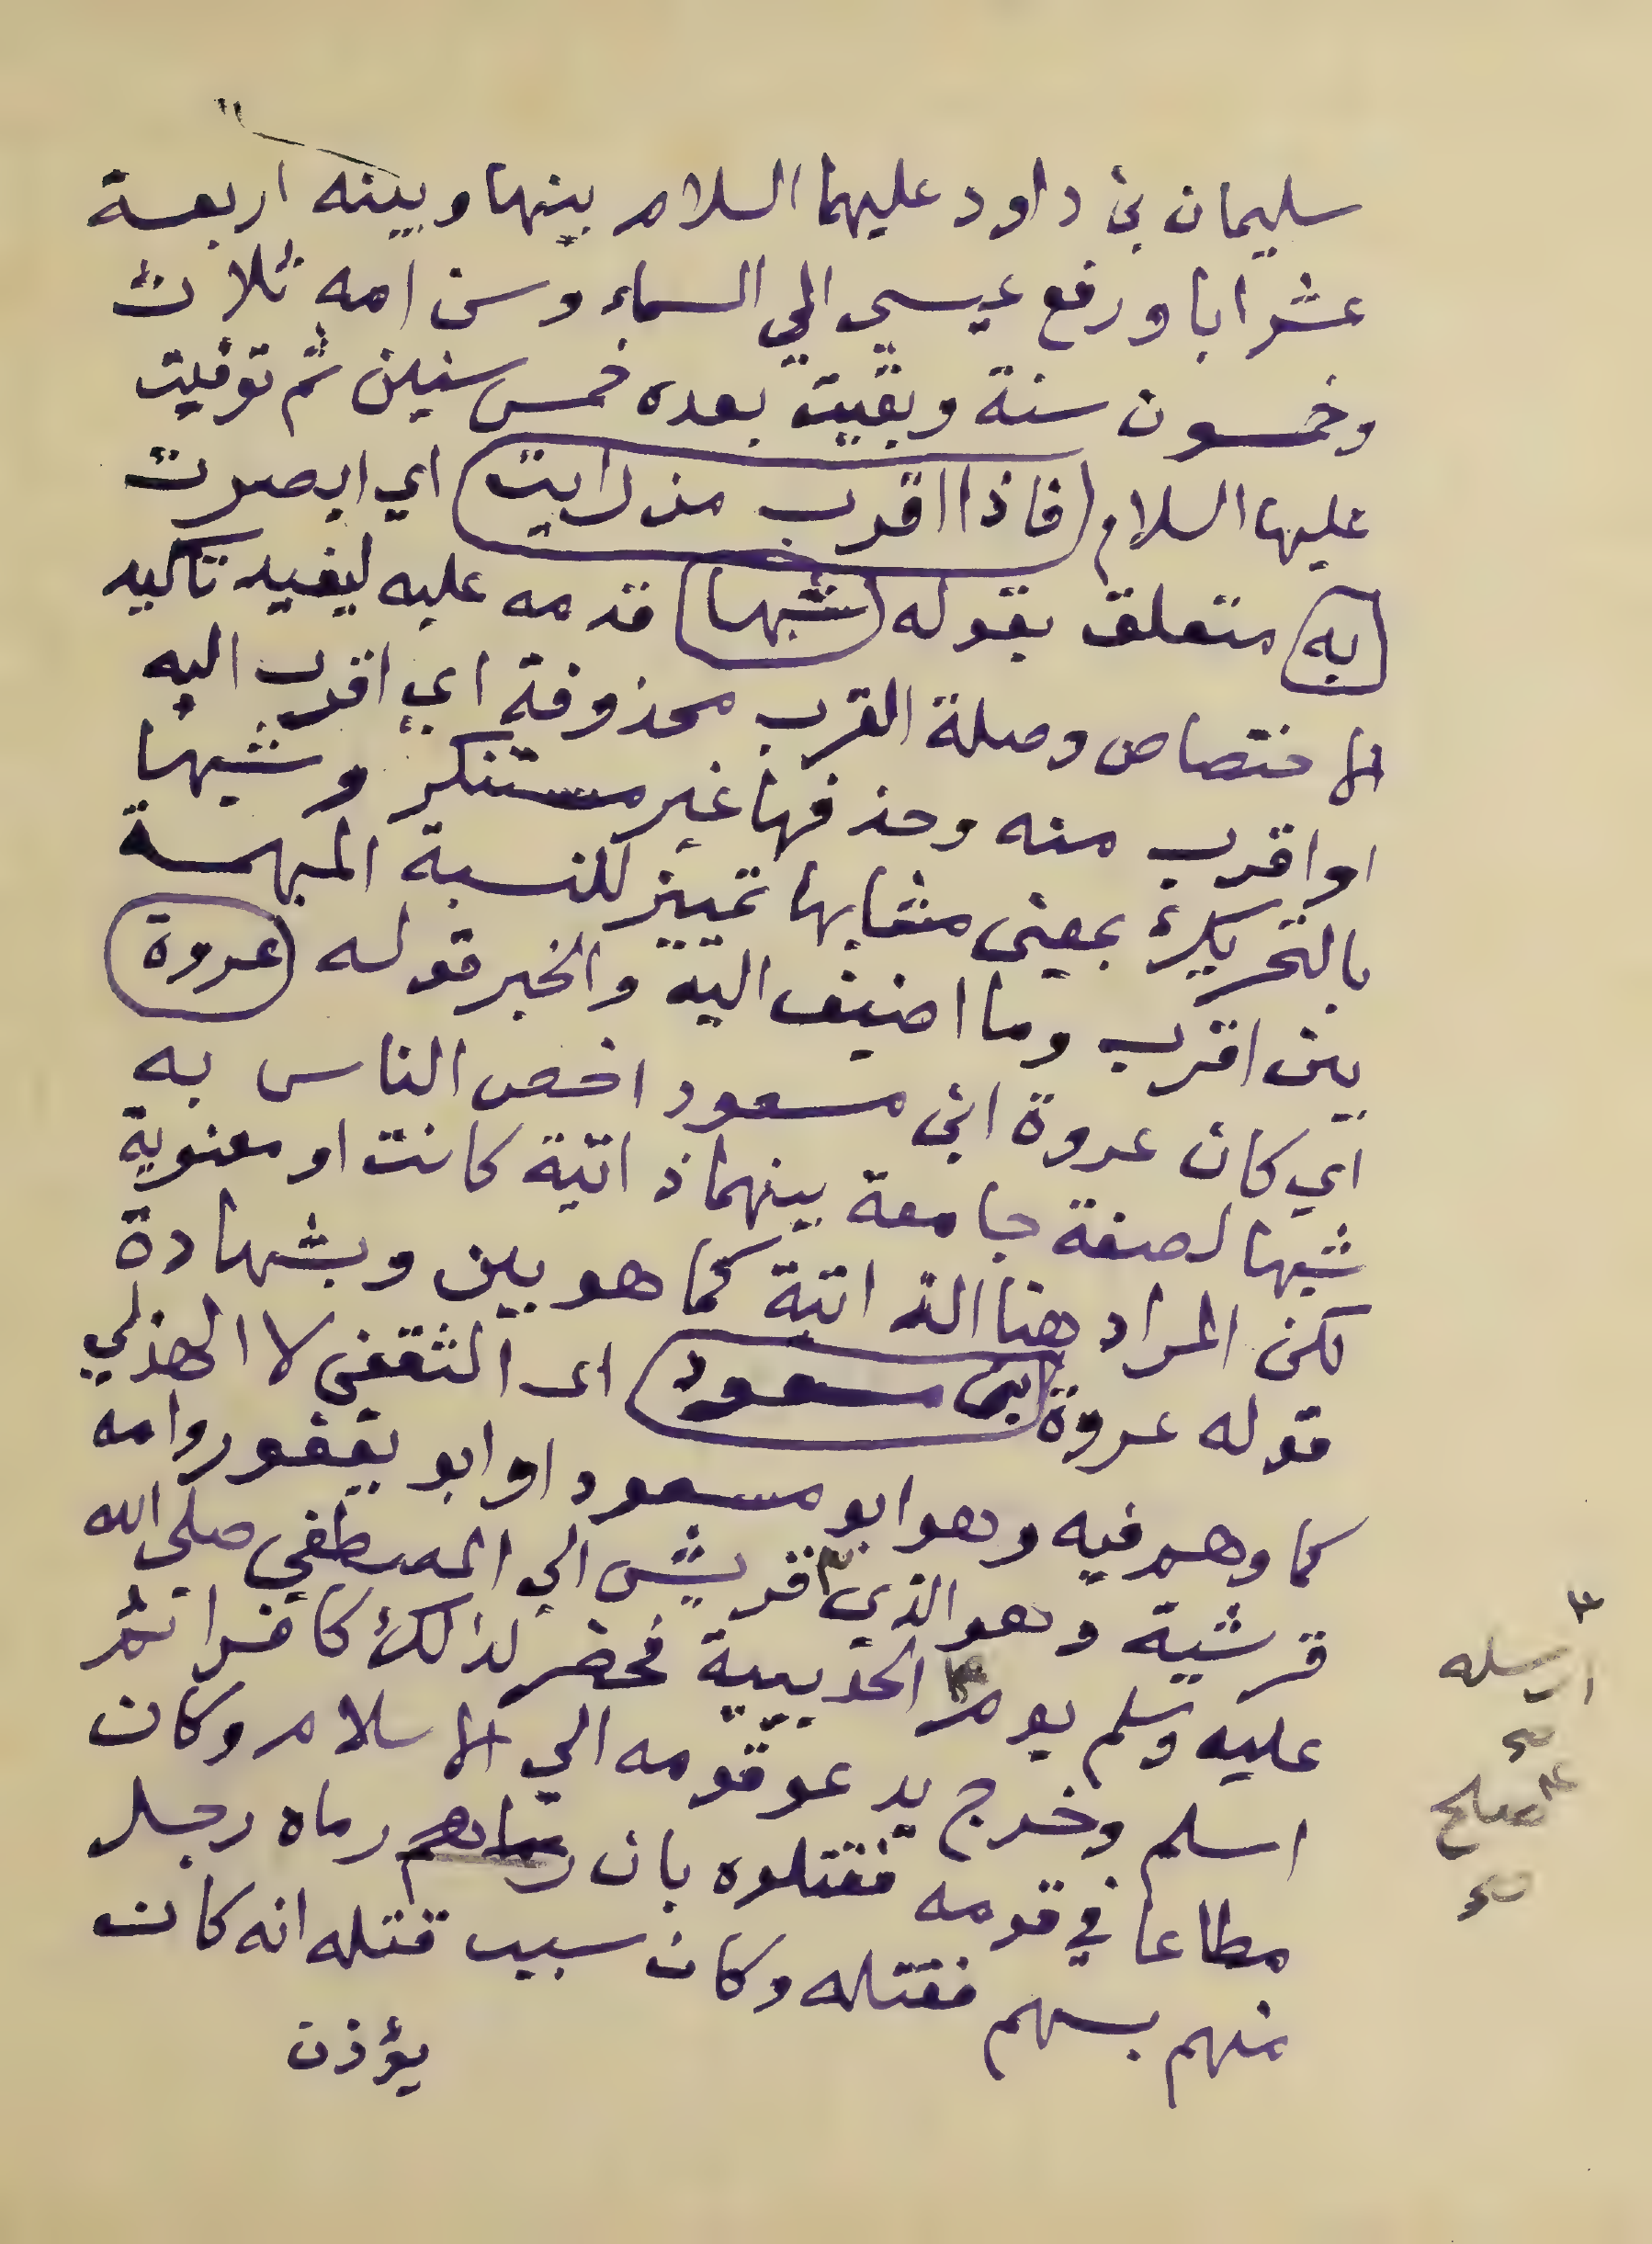 سليمان بن داود عليهما السلام بينها وبينه اربعة
عشر ابا ورفع عيسي الي السماء وسن امه ثلاث
وخمسون سنة وبقيت بعده خمس سنين ثم توفيت
عليها السلام (فاذا اقرب من رايت) اي ابصرت
(به) متعلق بقوله (شبها) قدمه عليه ليفيد تاكيد
الاختصاص وصلة القرب محذوفة اي اقرب اليه
او اقرب منه وحذفها غير مستنكر وشبها
بالتحريك بمعنى مشابها تمييز للنسبة المبهمة
بين اقرب وما اضيف اليه والخبر قوله (عروة)
اي كان عروة ابن مسعود اخص الناس به
شبها لصفة جامعة بينهما ذاتية كانت او معنوية
لكن المراد هنا الذاتية كما هو بين وبشهادة
قوله عروة (بن مسعود) اى الثقفي لا الهذلي
كما وهم فيه وهو ابو مسعود او ابو يعفور وامه
قرشية وهو الذي قريش الي المصطفي صلى الله
عليه وسلم يوم الحديبية فحضر لذلك كافرا ثم
اسلم وخرج يدعو قومه الي الاسلام وكان
مطاعا في قومه فقتلوه بان رماه رجل
منهم بسهم فقتله وكان سبب قتله انه كان
يؤذن
ارسله
صح
صلح
صح